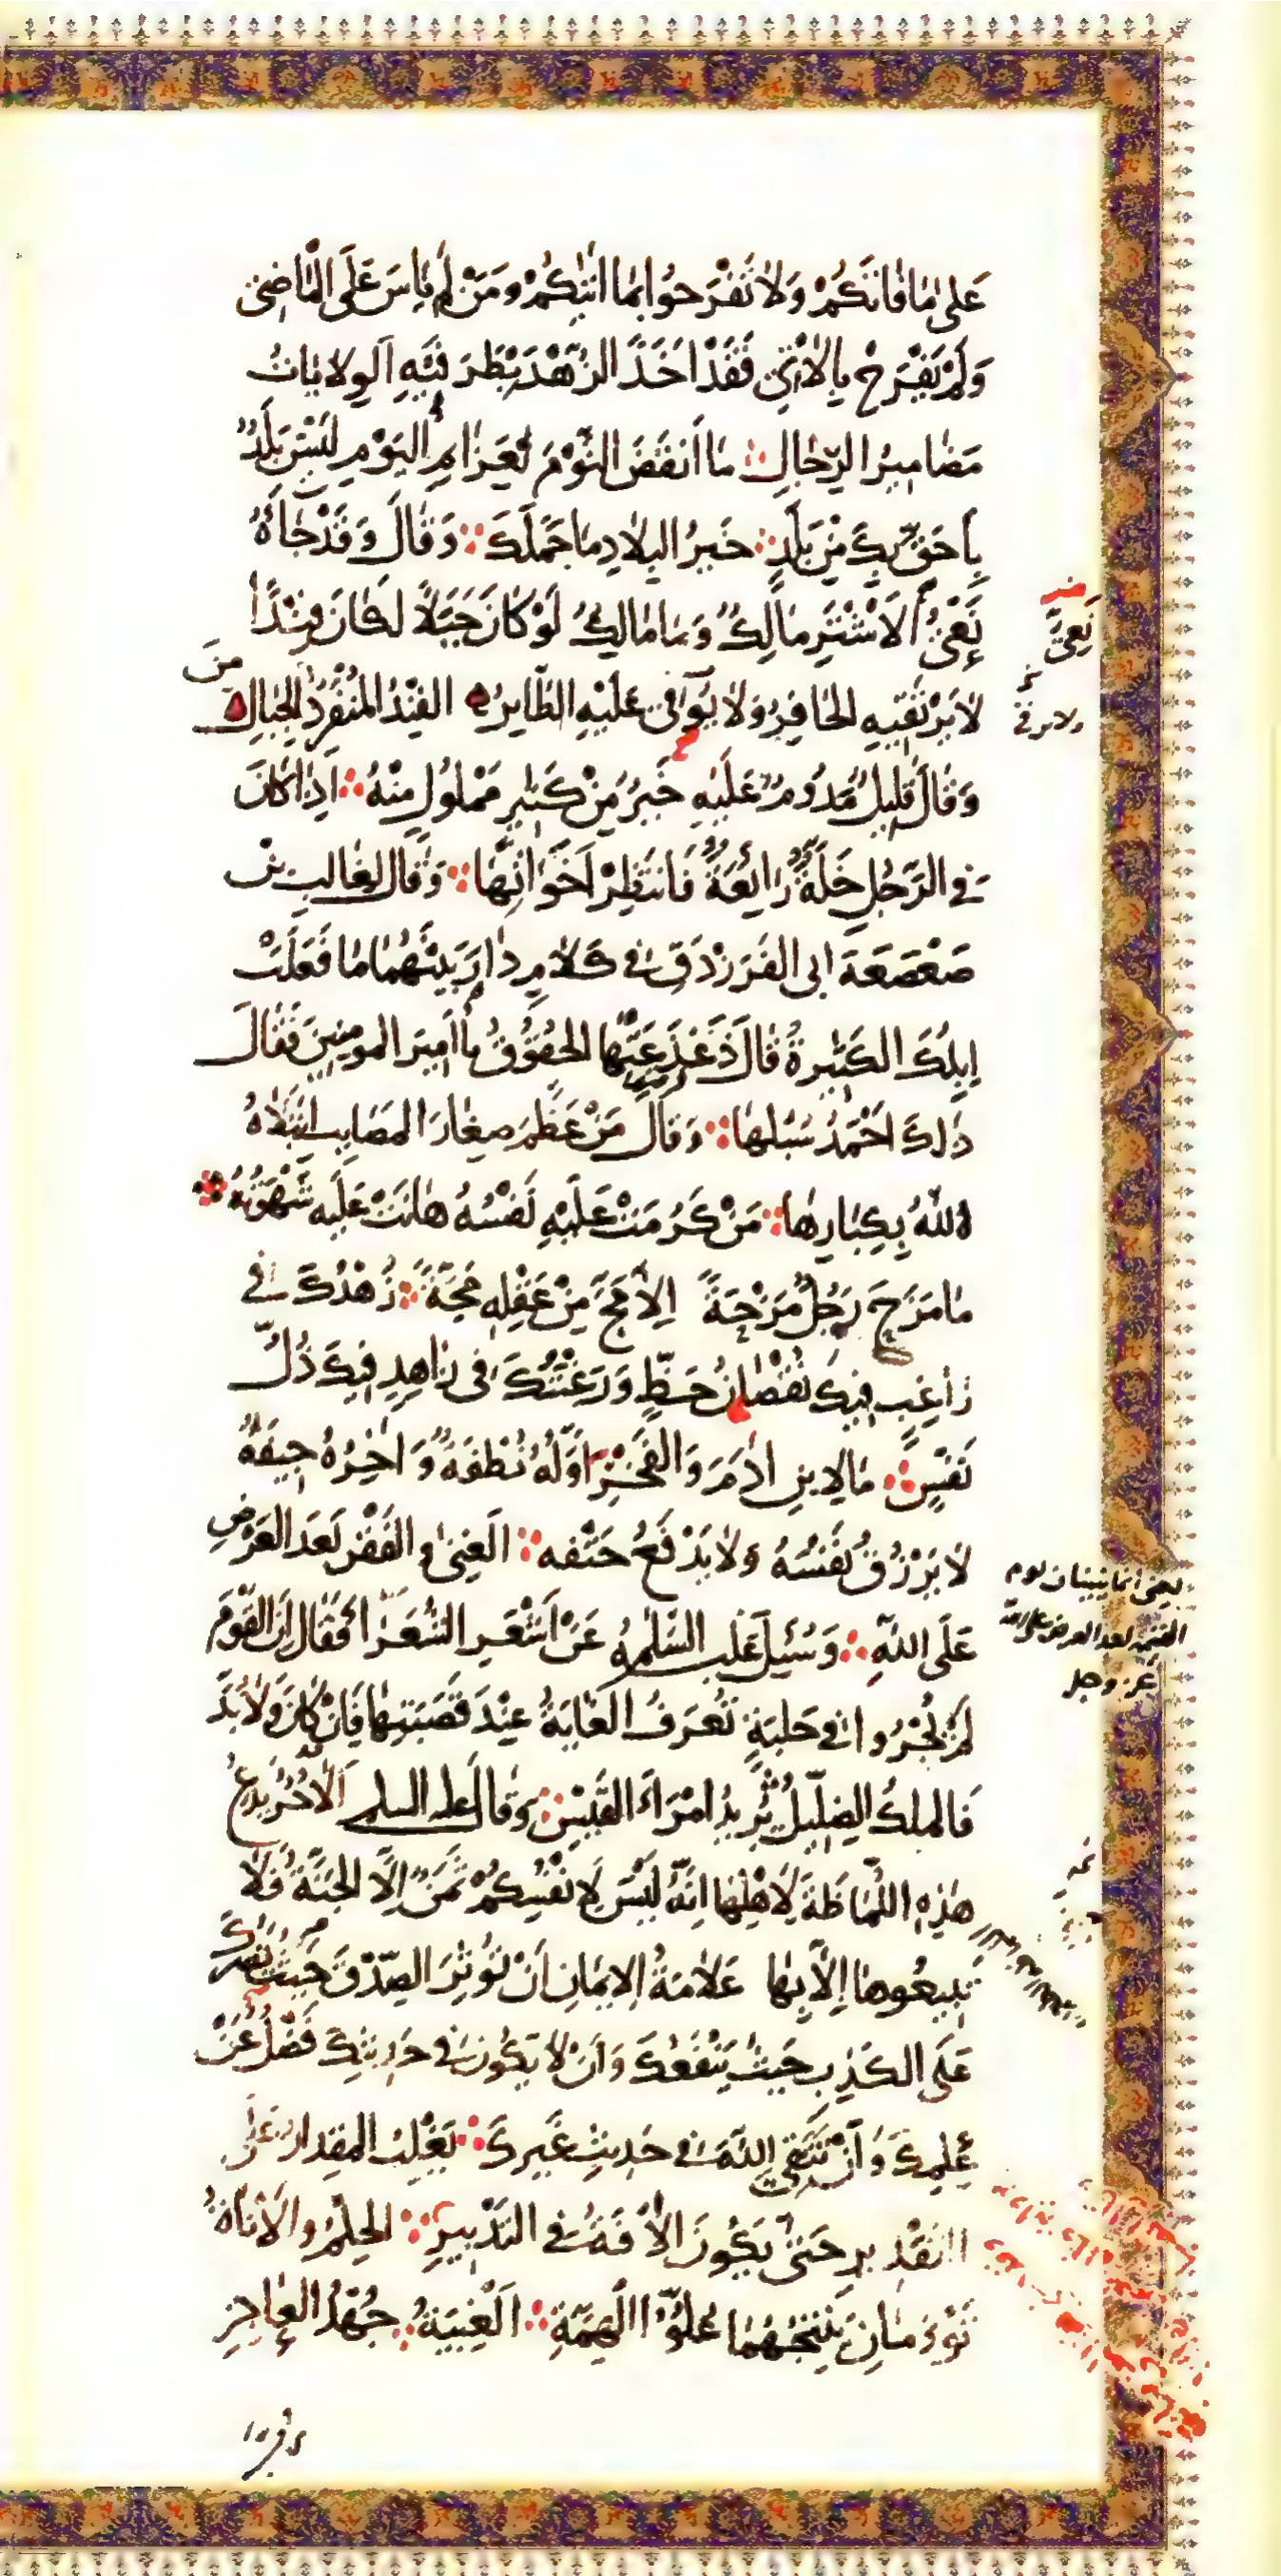 عَلى مٰا فٰاتَكُمْ وَلاٰ تَفْرَحوُا بِمٰا اٰتٰيكُمْ وَمَنْ لَم يٰاسَ عَلَى المٰاضِىٰ
وَلَمْ يَفْرَحْ بِالاٰتِىٰ فَقَدْ اَخَذَ الزُهْدَ بِطَرَفَيْهِ اَلوِلاٰيٰاتُ
مَضٰاميرُ الرِّجٰالِ مٰا اَنقَضَ النَّوْمَ لِعَزٰايِمِ اليَوْمِ لَيْسَ بَلَدٌ
بِاَحَقَّ بِكَ مِنْ بَلَدٍ خَيرُ البِلاٰدِ مٰا حَمَلَكَ وَقٰالَ وَقَدْ جٰاءَهُ
نَعْىُ الاَشْتَرِ مٰالِكٌ وَمٰا مٰالِكٌ لَوْ كٰانَ جَبَلاً لَكٰانَ فِنْدًا
لاٰ يَرْتَقيهِ الحٰافِرُ وَلاٰ يُوفى عَلَيْهِ الطّٰايِرُ الفِنْدُ المُنْفَرِدُ مِنَ الجِبٰالِ
وَقٰالَ قَليلٌ مَدُومٌ عَلَيْهِ خَيرٌ مِنْ كَثيرٍ مَمْلولٍ مِنْهُ اِذٰا كٰانَ
فى الرَّجُلِ خَلَّةٌ رٰائِعَةٌ فَانتَظِرْ اَخَوٰاتِهٰا وَقٰالَ لِغٰالِبِ بْنِ
صَعْصَعَةَ ابى الفَرَزْدَقِ فى كَلاٰمٍ دٰارَ بَيْنَهُمٰا مٰا فَعَلَتْ
اِبِلُكَ الكَثيرَةُ قٰالَ ذَعْذَعَتْهٰا الحُقُوقُ يٰا اَميرَ المومِنينَ فَقٰالَ
ذٰلِكَ اَحْمَدُ سُبُلِهٰا وَقٰالَ مَنْ عَظَّمَ صِغٰارَ المَصٰايِبِ ابْتَلاٰهُ
اللهُ بِكِبٰارِهٰا مَنْ كَرُمَتْ عَلَيْهِ نَفْسُهُ هٰانَتْ عَلَيهِ شَهْوَتُهُ
مٰا مَزَحَ رَجُلٌ مَزْحَةً اِلاّٰ مَجَّ مِنْ عَقْلِهِ مَجَّةً زُهْدُكَ فى
رٰاغِبٍ فيكَ نُقْصٰانُ حَظٍّ وَرَغْبَتُكَ فى زٰاهِدٍ فيكَ ذُلُّ
نَفْسٍ مٰا لِابنِ اٰدَمَ وَالفَخْرِ اَوَّلُهُ نُطْفَةٌ وَاٰخِرُهُ جيفَةٌ
لاٰ يَرْزُقُ نَفْسَهُ وَلاٰ يَدْفَعُ حَتْفَه اَلغِنىٰ وَالفَقْرُ بَعدَ العَرْضِ
عَلَى اللهِ وَسُئِلَ عَليه السّلم عَنْ اَشْعَرِ الشُّعَرٰاءِ فَقٰالَ اِنَّ القَوْمَ
لَمْ يَجْرُوا فى حَلبَةٍ تُعْرَفُ الغٰايَةُ عِنْدَ قَصَبَتِهٰا فَاِنْ كٰانَ وَلاٰ بُدَّ
فَالملِكُ الضِلّيلُ يُريدُ امْرَاَ القَيْسِ وَقٰالَ عليه السلم اَلاٰ حُرٌّ يَدَعُ
هٰذِهِ اللُّمٰاظَةَ لِاَهْلِهٰا اِنَّهُ لَيْسَ لِاَنفُسِكُمْ ثَمَنٌ اِلاَّ الجَنَّةُ فَلاٰ
تَبيعُوهٰا اِلاّٰ بِهٰا عَلاٰمَةُ الايمٰانِ اَنْ تُوثِرَ الصِّدْقَ حَيثُ يَضُرُّكَ
عَلَى الكَذِبِ حَيثُ يَنْفَعُكَ وَاَنْ لاٰ يَكُونَ فى حَديثِكَ فَضْلٌ عَنْ
عِلمِكَ وَاَنْ تَتَّقِىَ اللهَ فى حَديثِ غَيرِكَ يَغْلِبُ المِقدارُ عَلَى
التَقْديرِ حَتىّٰ يَكُونَ الاٰفَةُ فى التَدْبيرِ الحِلْمُ وَالاَنٰاةُ
تَوْءَمٰانِ يُنْتِجُهُمٰا عُلُوُّ الهِمَّةِ اَلْغِيبَةُ جُهْدُ العٰاجِزِ
نَعِىُّ
يعنى انما يتبينان يوم
القيمة بعد العرض على الله
عز وجل